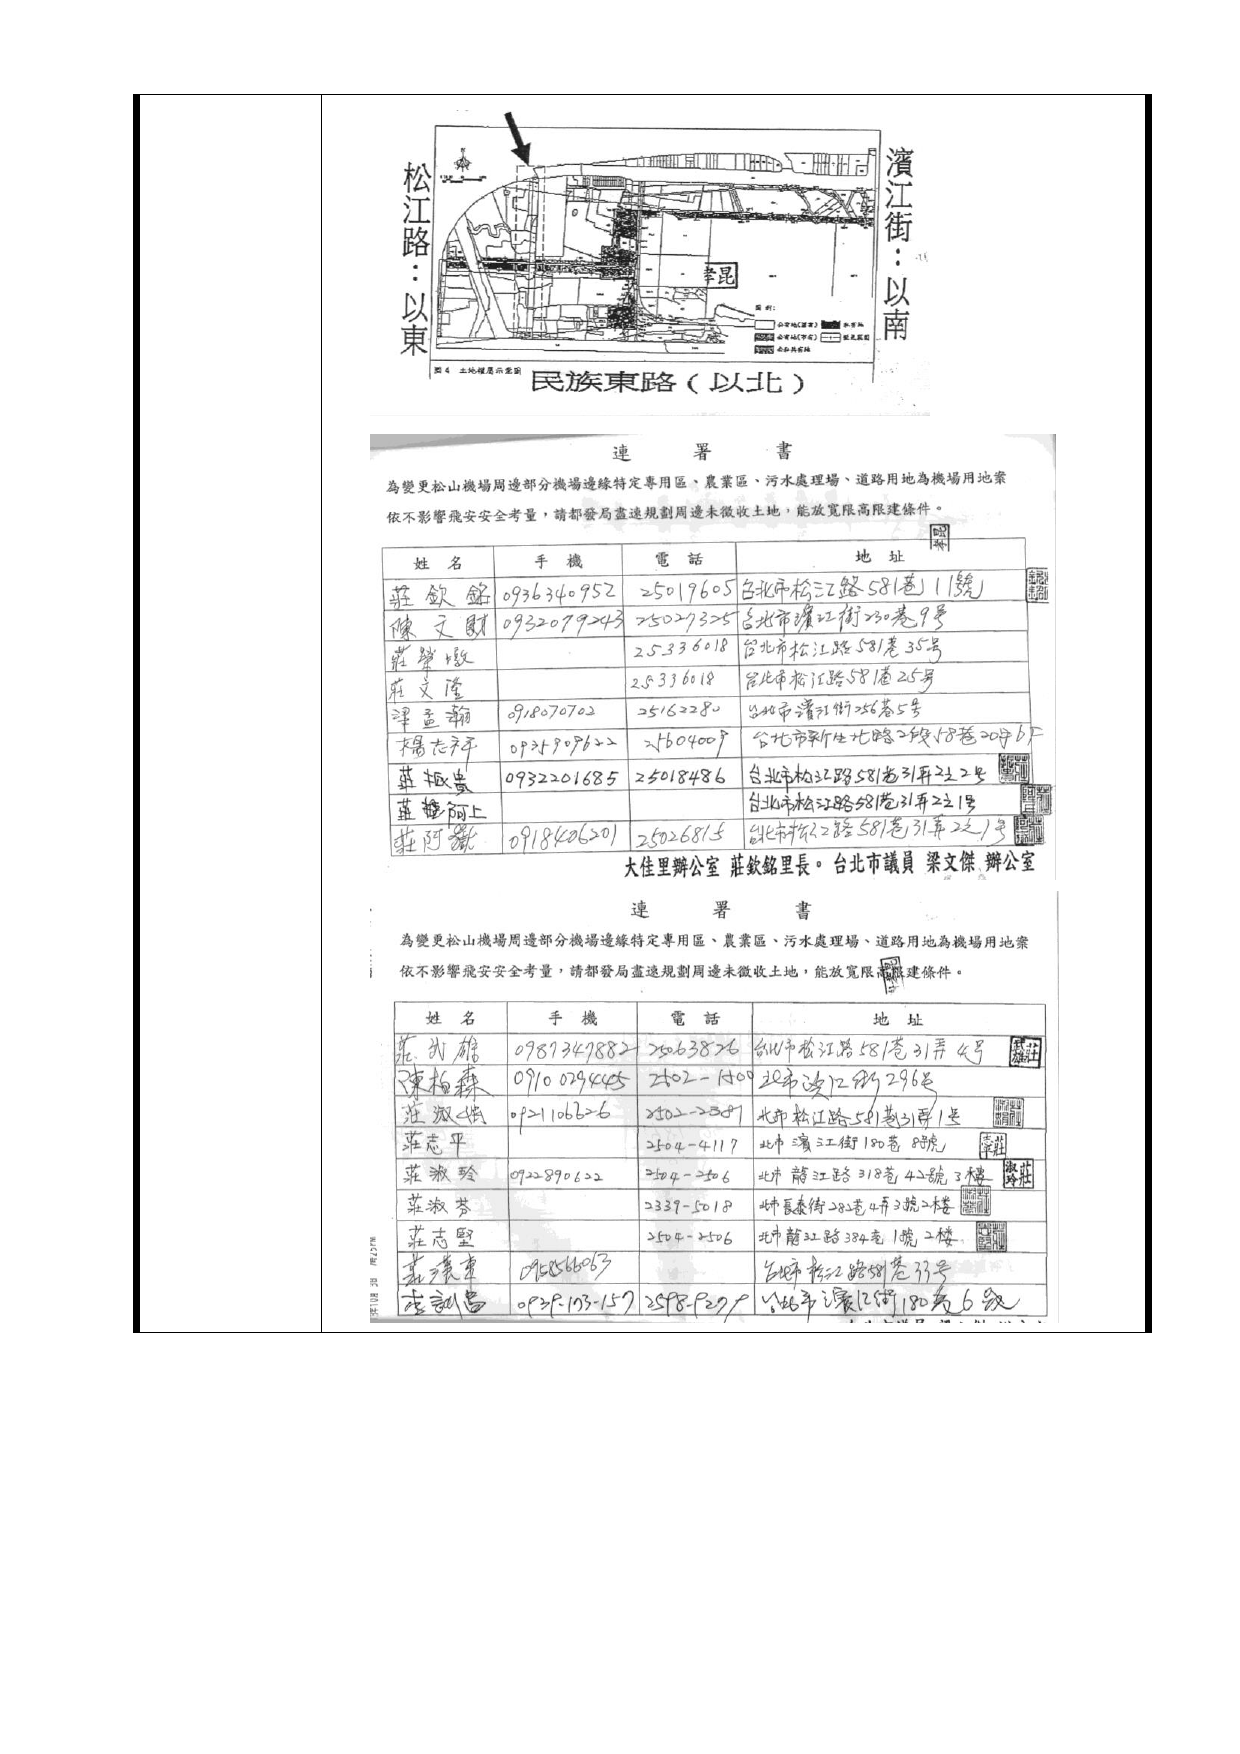 松江路：以東
濱江街：以南
圖例：
公有地(國有) 私有地
公有地(市有)
公私共有地
圖4 土地權屬示意圖
民族東路（以北）
連 署 書
為變更松山機場周邊部分機場邊緣特定專用區、農業區、污水處理場、道路用地為機場用地案
依不影響飛安安全考量，請都發局盡速規劃周邊未徵收土地，能放寬限高限建條件。
姓 名 手 機 電 話 地 址
莊欽銘 0936340952 25019605 台北市松江路581巷11號
陳文財 0932079243 25027325 台北市濱江街230巷9号
莊榮墩 25336018 台北市松江路581巷35号
莊文隆 25336018 台北市松江路581巷25号
孟瀚 0918070702 25162280 台北市濱江街256巷5号
楊志祥 0935909622 25604009 台北市新生北路2段58巷20号6F
莊極貴 0932201685 25018486 台北市松江路581巷31弄2之2号
莊 阿上 台北市松江路581巷31弄2之1号
莊阿 0918406201 25026815 台北市松江路581巷31弄2之1号
大佳里辦公室 莊欽銘里長。台北市議員 梁文傑 辦公室
連 署 書
為變更松山機場周邊部分機場邊緣特定專用區、農業區、污水處理場、道路用地為機場用地案
依不影響飛安安全考量，請都發局盡速規劃周邊未徵收土地，能放寬限高限建條件。
姓 名 手 機 電 話 地 址
莊武雄 0987347882 25063826 台北市松江路581巷31弄4号
陳柏森 0910029445 2502-1500 北市濱江街296号
莊淑 0921106626 2502-2387 北市松江路581巷31弄1号
莊志平 2504-4117 北市濱江街180巷8號
莊淑玲 0922890622 2504-2506 北市龍江路318巷42號3樓
莊淑芬 2339-5018 北市長泰街282巷4弄3號2樓
莊志堅 2504-2506 北市龍江路384巷1號2樓
莊 東 0958566063 台北市松江路581巷33号
李訓昌 0939-173-157 2598-9279 台北市濱江街180巷6號